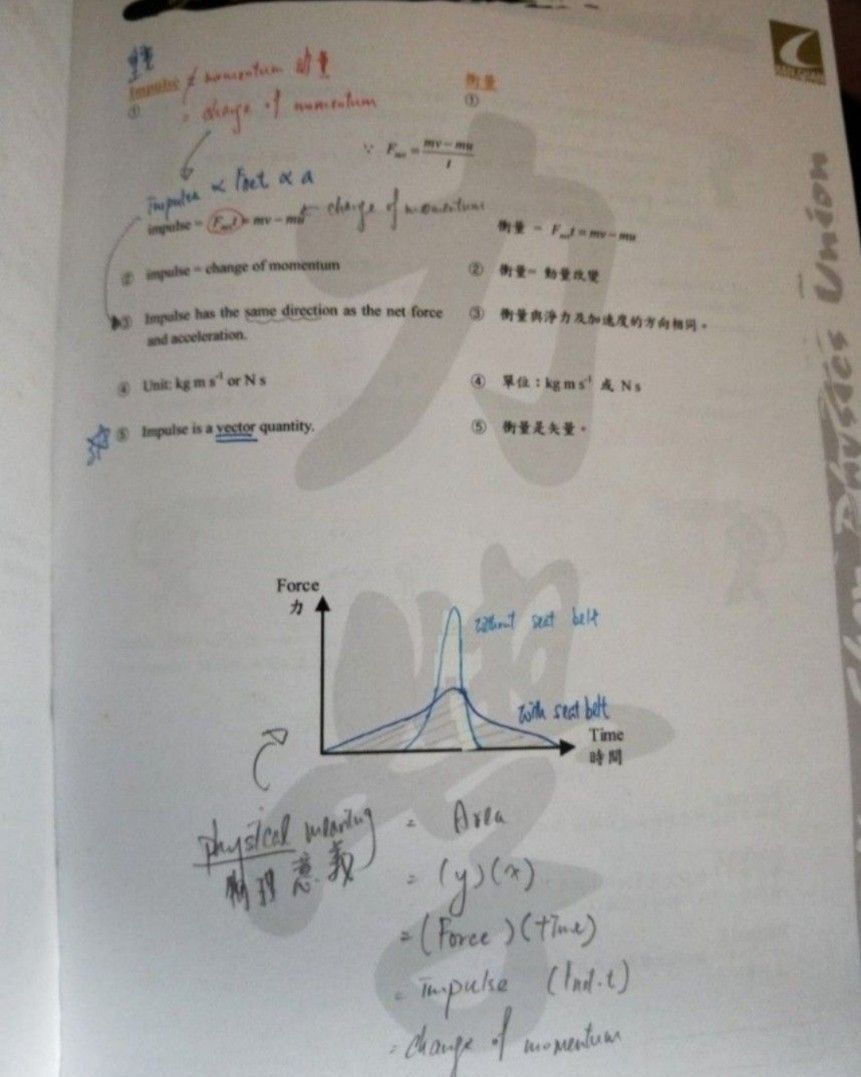 衝量
Impulse ≠ momentum 動量
①
= change of momentum
衝量
①
∵ Fnet = (mv − mu) / t
Impulse ∝ Fnet ∝ a
impulse = Fnet t = mv − mu ← change of momentum
衝量 = Fnet t = mv − mu
② impulse = change of momentum
② 衝量= 動量改變
③ Impulse has the same direction as the net force
and acceleration.
③ 衝量與淨力及加速度的方向相同。
④ Unit: kg m s⁻¹ or N s
④ 單位：kg m s⁻¹ 或 N s
⑤ Impulse is a vector quantity.
⑤ 衝量是矢量。
Force
力
without seat belt
with seat belt
Time
時間
physical meaning = Area
物理意義
= (y)(x)
= (Force)(time)
= impulse (Fnet·t)
= change of momentum
Physics Union
力學